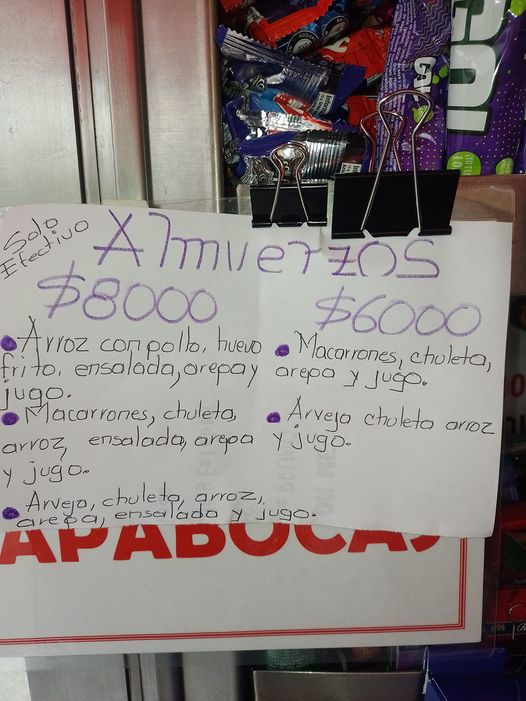 Solo
Efectivo
Almuerzos
$8000
• Arroz con pollo, huevo
frito, ensalada, arepa y
jugo.
• Macarrones, chuleta,
arroz, ensalada, arepa
y jugo.
• Arveja, chuleta, arroz,
arepa, ensalada y jugo.
$6000
• Macarrones, chuleta,
arepa y jugo.
• Arveja chuleta arroz
y jugo.
APABOCAS